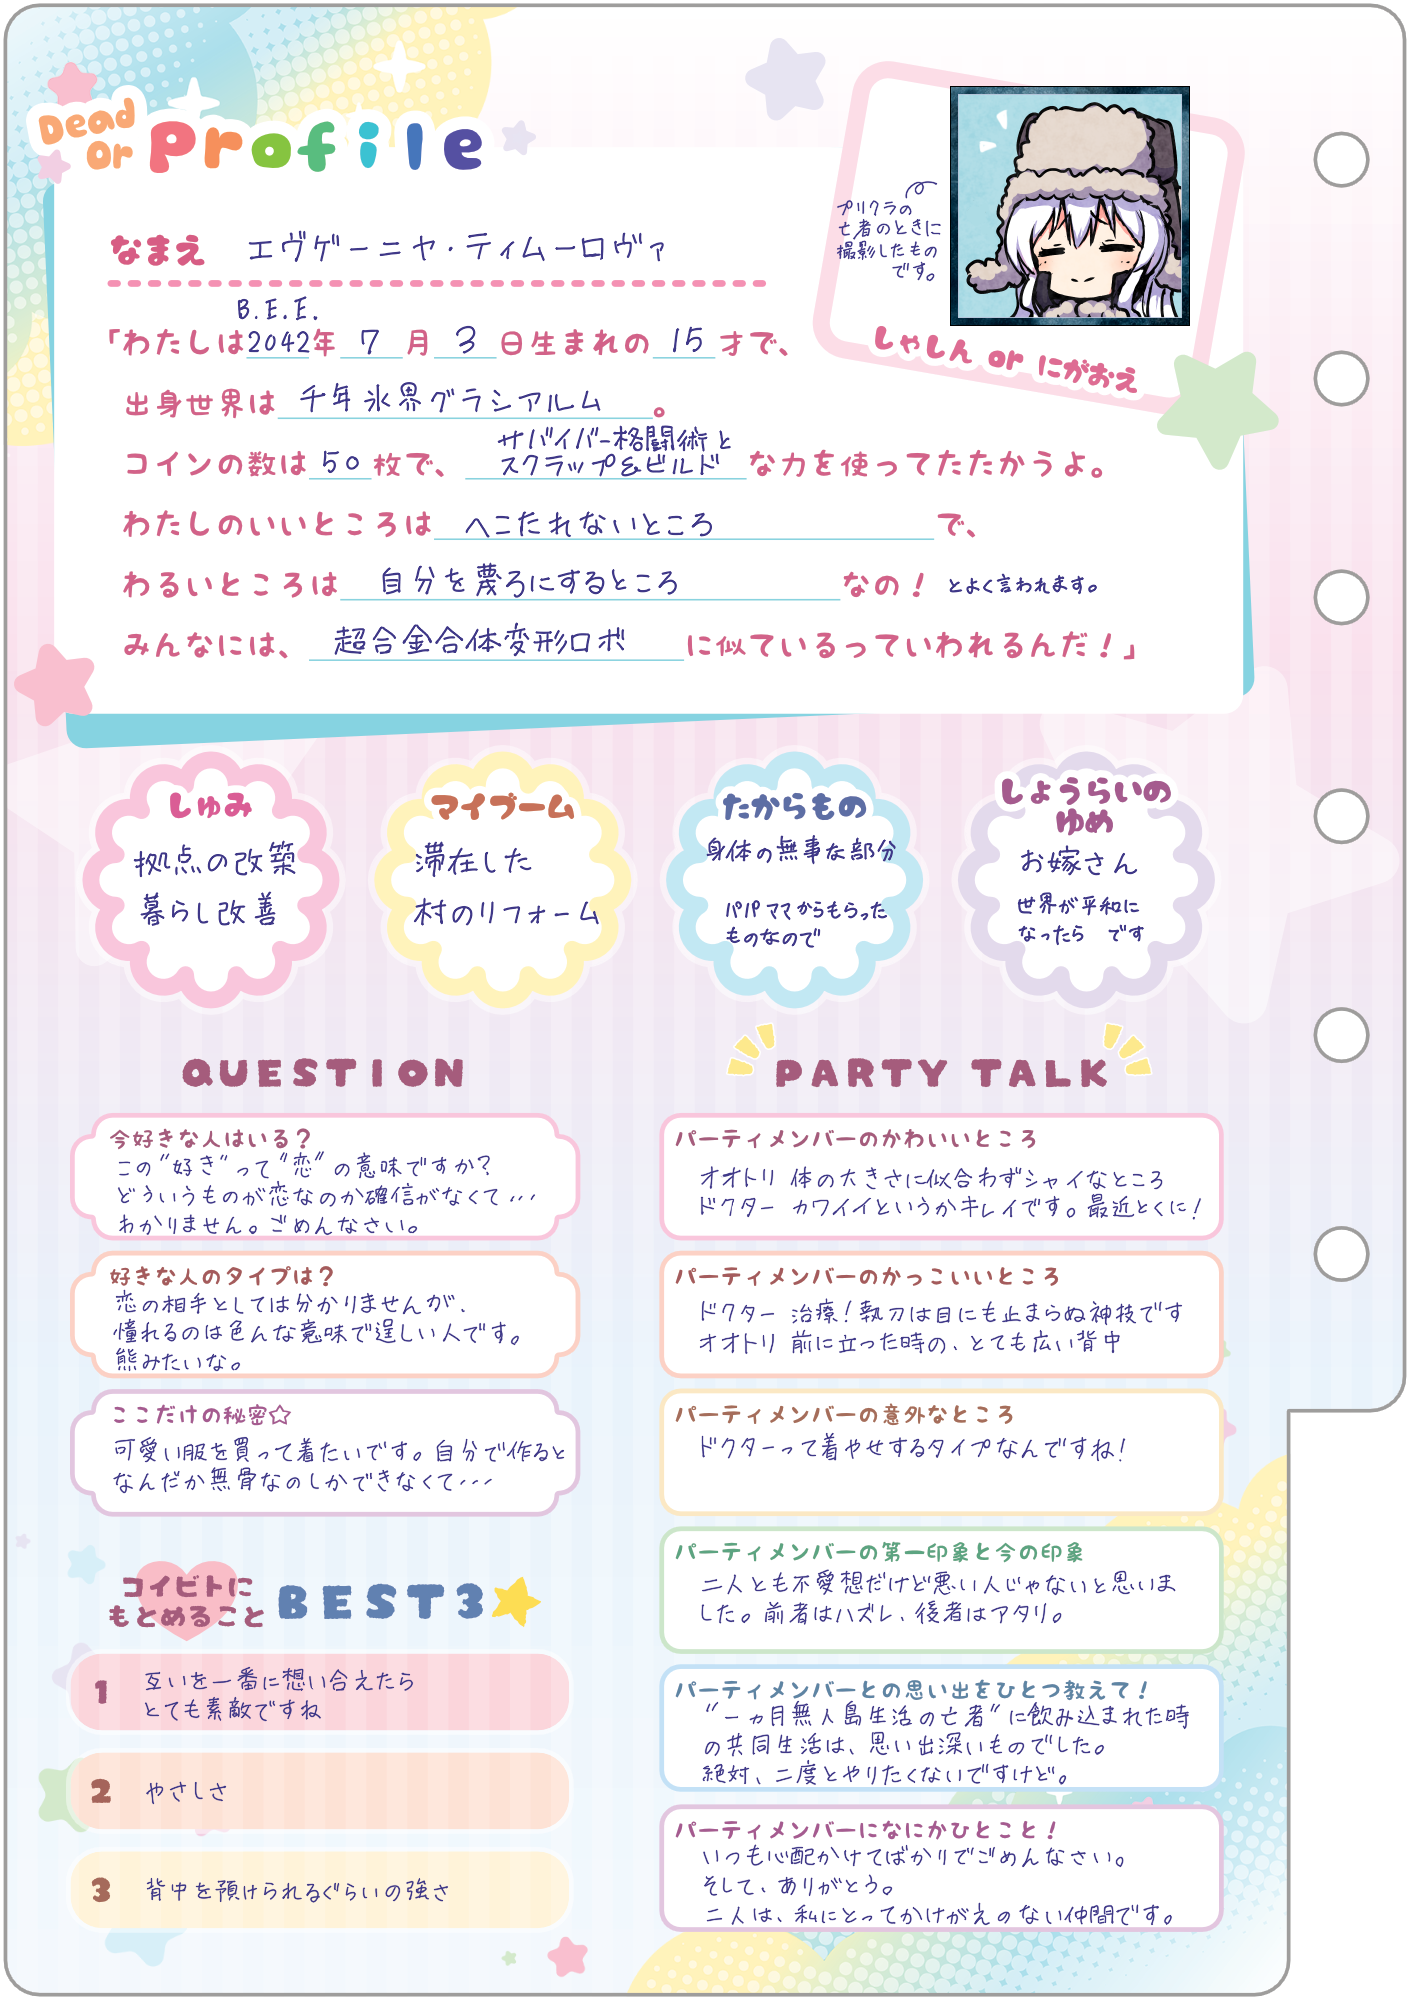 Dead
Or
Profile
なまえ エヴゲーニヤ・ティムーロヴァ
プリクラの
亡者のときに
撮影したもの
です。
しゃしん or にがおえ
B.E.E.
「わたしは2042年 7 月 3 日生まれの 15 才で、
出身世界は 千年氷界グラシアルム 。
コインの数は 50 枚で、 サバイバー格闘術と
スクラップ&ビルド な力を使ってたたかうよ。
わたしのいいところは へこたれないところ で、
わるいところは 自分を蔑ろにするところ なの! とよく言われます。
みんなには、 超合金合体変形ロボ に似ているっていわれるんだ!」
しゅみ
拠点の改築
暮らし改善
マイブーム
滞在した
村のリフォーム
たからもの
身体の無事な部分
パパママからもらった
ものなので
しょうらいの
ゆめ
お嫁さん
世界が平和に
なったら です
QUESTION
今好きな人はいる?
この"好き"って"恋"の意味ですか?
どういうものが恋なのか確信がなくて・・・
わかりません。ごめんなさい。
好きな人のタイプは?
恋の相手としては分かりませんが、
憧れるのは色んな意味で逞しい人です。
熊みたいな。
ここだけの秘密☆
可愛い服を買って着たいです。自分で作ると
なんだか無骨なのしかできなくて・・・
コイビトに
もとめること BEST3
1 互いを一番に想い合えたら
とても素敵ですね
2 やさしさ
3 背中を預けられるぐらいの強さ
PARTY TALK
パーティメンバーのかわいいところ
オオトリ 体の大きさに似合わずシャイなところ
ドクター カワイイというかキレイです。最近とくに!
パーティメンバーのかっこいいところ
ドクター 治療!執刀は目にも止まらぬ神技です
オオトリ 前に立った時の、とても広い背中
パーティメンバーの意外なところ
ドクターって着やせするタイプなんですね!
パーティメンバーの第一印象と今の印象
二人とも不愛想だけど悪い人じゃないと思いま
した。前者はハズレ、後者はアタリ。
パーティメンバーとの思い出をひとつ教えて!
"一ヵ月無人島生活の亡者"に飲み込まれた時
の共同生活は、思い出深いものでした。
絶対、二度とやりたくないですけど。
パーティメンバーになにかひとこと!
いつも心配かけてばかりでごめんなさい。
そして、ありがとう。
二人は、私にとってかけがえのない仲間です。